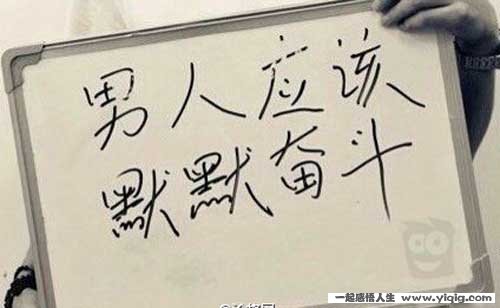 男人应该
默默奋斗
一起感悟人生
www.yiqig.com